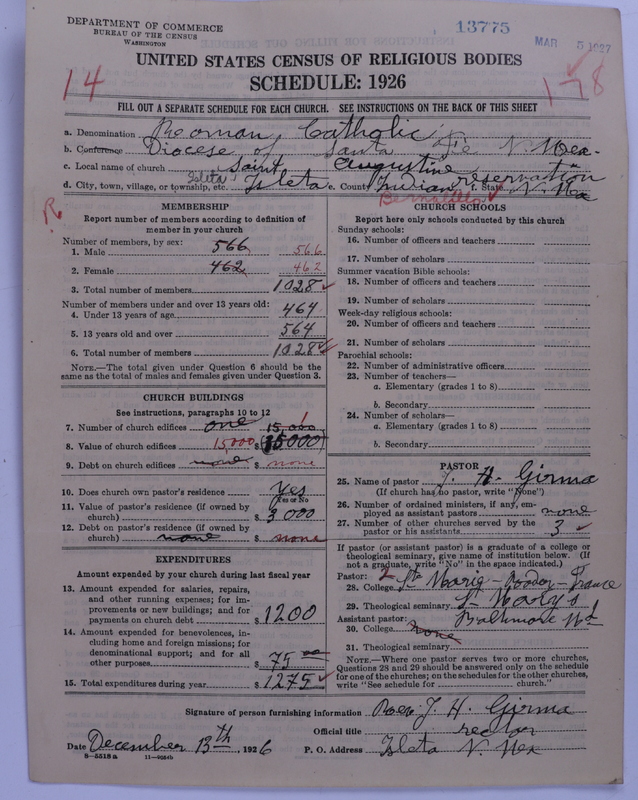 DEPARTMENT OF COMMERCE
BUREAU OF THE CENSUS
WASHINGTON
13775
MAR 5 1927
UNITED STATES CENSUS OF RELIGIOUS BODIES
SCHEDULE: 1926
14
178
FILL OUT A SEPARATE SCHEDULE FOR EACH CHURCH. SEE INSTRUCTIONS ON THE BACK OF THIS SHEET
a. Denomination Roman Catholic
b. Conference Diocese of Santa Fe N. Mex.
c. Local name of church Saint Augustine
d. City, town, village, or township, etc. Isleta Isleta e. County Indian reservation f. State N. Mex
Bernalillo
R
MEMBERSHIP
Report number of members according to definition of member in your church
Number of members, by sex:
1. Male 566 566
2. Female 462 462
3. Total number of members 1028
Number of members under and over 13 years old:
4. Under 13 years of age 464
5. 13 years old and over 564
6. Total number of members 1028
NOTE.—The total given under Question 6 should be the same as the total of males and females given under Question 3.
CHURCH BUILDINGS
See instructions, paragraphs 10 to 12
7. Number of church edifices one 15,000 1
8. Value of church edifices 15,000 $ 15000
9. Debt on church edifices none $ none
10. Does church own pastor's residence yes
(Yes or No)
11. Value of pastor's residence (if owned by church) $ 3000
12. Debt on pastor's residence (if owned by church) none $ none
EXPENDITURES
Amount expended by your church during last fiscal year
13. Amount expended for salaries, repairs, and other running expenses; for improvements or new buildings; and for payments on church debt $ 1200
14. Amount expended for benevolences, including home and foreign missions; for denominational support; and for all other purposes $ 75 00
15. Total expenditures during year $ 1275
CHURCH SCHOOLS
Report here only schools conducted by this church
Sunday schools:
16. Number of officers and teachers
17. Number of scholars
Summer vacation Bible schools:
18. Number of officers and teachers
19. Number of scholars
Week-day religious schools:
20. Number of officers and teachers
21. Number of scholars
Parochial schools:
22. Number of administrative officers
23. Number of teachers—
a. Elementary (grades 1 to 8)
b. Secondary
24. Number of scholars—
a. Elementary (grades 1 to 8)
b. Secondary
PASTOR
25. Name of pastor J. H. Girma
(If church has no pastor, write "None")
26. Number of ordained ministers, if any, employed as assistant pastors none
27. Number of other churches served by the pastor or his assistants 3
If pastor (or assistant pastor) is a graduate of a college or theological seminary, give name of institution below. (If not a graduate, write "No" in the space indicated.)
Pastor: 2
28. College Ste Marie France
29. Theological seminary St Mary's
Assistant pastor: Baltimore Md
30. College none
31. Theological seminary
NOTE.—Where one pastor serves two or more churches, Questions 28 and 29 should be answered only on the schedule for one of the churches; on the schedules for the other churches, write "See schedule for church."
Signature of person furnishing information Rev. J. H. Girma
Official title rector
Date December 13th, 1926 P. O. Address Isleta N. Mex
8-5518a 11-9034b